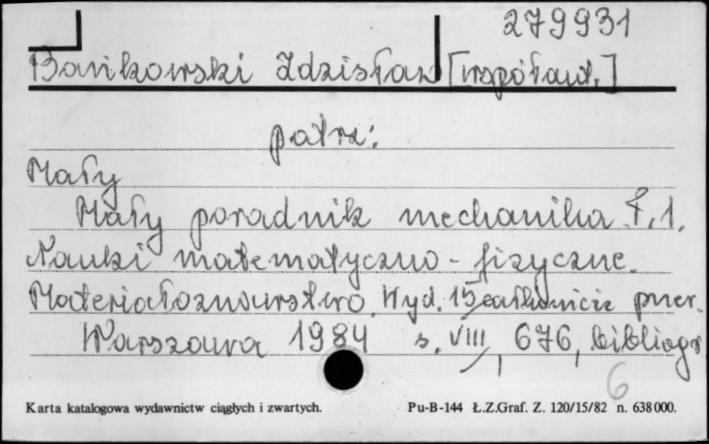 279931
Bańkowski Zdzisław [współaut.]
patrz:
Mały
Mały poradnik mechanika T. 1.
Nauki matematyczno-fizyczne.
Materiałoznawstwo. Wyd. 15 całkowicie przer.
Warszawa 1984 s. VIII, 676, bibliogr
6
Karta katalogowa wydawnictw ciągłych i zwartych. Pu-B-144 Ł.Z.Graf. Z. 120/15/82 n. 638000.